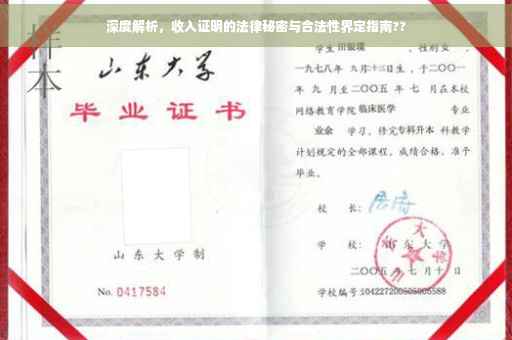 深度解析，收入证明的法律秘密与合法性界定指南??
样本
山东大学
毕业证书
山东大学制
No. 0417584
学生 田银瑞 ，性别女，
一九七八年 九月十三日生，于二○○一
年 九 月至二○○五 年 七 月在本校
网络教育学院 临床医学 专业
业余 学习，修完 专科升本 科教学
计划规定的全部课程，成绩合格，准予
毕业。
校 长：
学 校： 山东大学
二○○五年七月十日
学校编号:104227200505005588